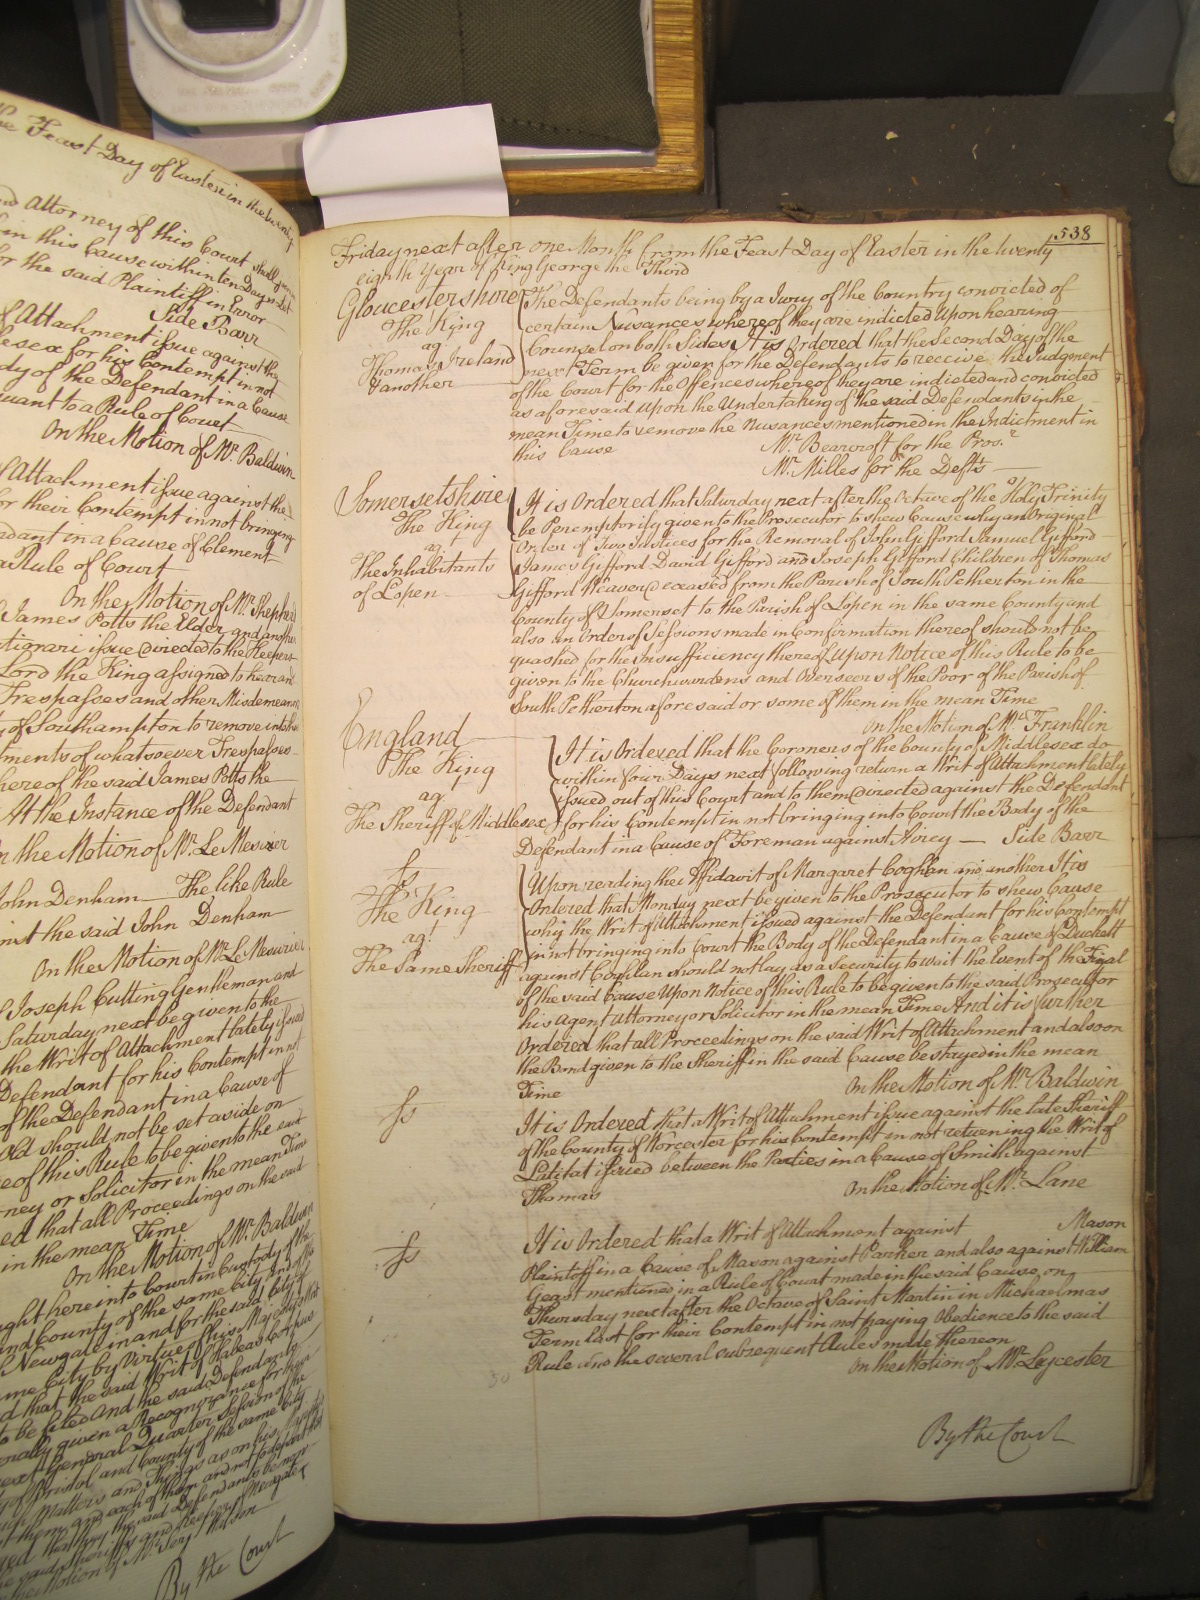 he Feast Day of Easter in the twenty
nd Attorney of this Court shall
in this Cause within ten Days
or the said Plaintiff in Error
Side Barr
of Attachment issue against the
lesex for his Contempt in not
dy of the Defendant in a Cause
suant to a Rule of Court
On the Motion of Mr. Baldwin
of Attachment issue against the
or their Contempt in not bringing
ndant in a Cause of Clement
a Rule of Court
On the Motion of Mr. Shepherd
James Potts the Elder and another
tiorari issue directed to the Keepers
Lord the King assigned to hear an
Trespasses and other Misdemeanors
of Southampton to remove into
tments of whatsoever Trespasses
hereof the said James Potts the
At the Instance of the Defendant
n the Motion of Mr. Le Mesurier
John Denham The like Rule
inst the said John Denham
On the Motion of Mr. Le Mesurier
Joseph Cutting Gentleman and
Saturday next be given to the
the Writ of Attachment lately issued
Defendant for his Contempt in not
of the Defendant in a Cause of
Old should not be set aside on
ce of this Rule to be given to the
ney or Solicitor in the mean Time
ed that all Proceedings on the said
in the mean Time
On the Motion of Mr. Baldwin
ught here into Court in Custody of the
and County of the same City and of
Newgate in and for the said City of
ame City by Virtue of his Majesty's Writ
d that the said Writ of Habeas Corpus
to be filed And the said Defendants
erally given a Recognizance for their
next General Quarter Session of the
of Bristol and County of the same City
such Matters and Things as on his
t them and each of them and not to depart
the said Defendants be now
he said Sheriffs and Keeper of Newgate
By the Court
538
Friday next after one Month from the Feast Day of Easter in the twenty
eighth Year of King George the Third
Gloucestershire The Defendants being by a Jury of the Country convicted of
The King certain Nusances whereof they are indicted Upon hearing
agt. Counsel on both Sides It is Ordered that the Second Day of the
Thomas Ireland next Term be given for the Defendants to receive the Judgment
& another of the Court for the Offences whereof they are indicted and convicted
as aforesaid upon the Undertaking of the said Defendants in the
mean Time to remove the Nusances mentioned in the Indictment in
this Cause Mr. Bearcroft for the Prosr.
Mr. Milles for the Defts
Somersetshire It is Ordered that Saturday next after the Octave of the Holy Trinity
The King be Peremptorily given to the Prosecutor to shew Cause why an Original
agt. Order of Two Justices for the Removal of John Gifford Samuel Gifford
The Inhabitants James Gifford David Gifford and Joseph Gifford Children of Thomas
of Lopen Gifford Weaver deceased from the Parish of South Petherton in the
County of Somerset to the Parish of Lopen in the same County and
also an Order of Sessions made in Confirmation thereof should not be
quashed for the Insufficiency thereof Upon Notice of this Rule to be
given to the Churchwardens and Overseers of the Poor of the Parish of
South Petherton aforesaid or some of them in the mean Time
On the Motion of Mr. Franklin
England It is Ordered that the Coroners of the County of Middlesex do
The King within four Days next following return a Writ of Attachment lately
agt. issued out of this Court and to them directed against the Defendant
The Sheriff of Middlesex for his Contempt in not bringing into Court the Body of the
Defendant in a Cause of Foreman against Airey Side Barr
ss Upon reading the Affidavit of Margaret Coghlan and another It is
The King Ordered that Monday next be given to the Prosecutor to shew Cause
agt. why the Writ of Attachment issued against the Defendant for his Contempt
The Same Sheriff in not bringing into Court the Body of the Defendant in a Cause of Duckett
against Coghlan should not lay as a Security to wait the Event of the Final
of the said Cause Upon Notice of this Rule to be given to the said Prosecutor
his Agent Attorney or Solicitor in the mean Time And it is further
Ordered that all Proceedings on the said Writ of Attachment and also on
the Bond given to the Sheriff in the said Cause be stayed in the mean
Time On the Motion of Mr. Baldwin
ss It is Ordered that a Writ of Attachment issue against the late Sheriff
of the County of Worcester for his Contempt in not returning the Writ of
Latitat issued between the Parties in a Cause of Smith against
Thomas On the Motion of Mr. Lane
ss It is Ordered that a Writ of Attachment against Mason
Plaintiff in a Cause of Mason against Parker and also against William
Geast mentioned in a Rule of Court made in the said Cause on
Thursday next after the Octave of Saint Martin in Michaelmas
Term last for their Contempt in not paying Obedience to the said
Rule and the several subsequent Rules made thereon
On the Motion of Mr. Leycester
By the Court